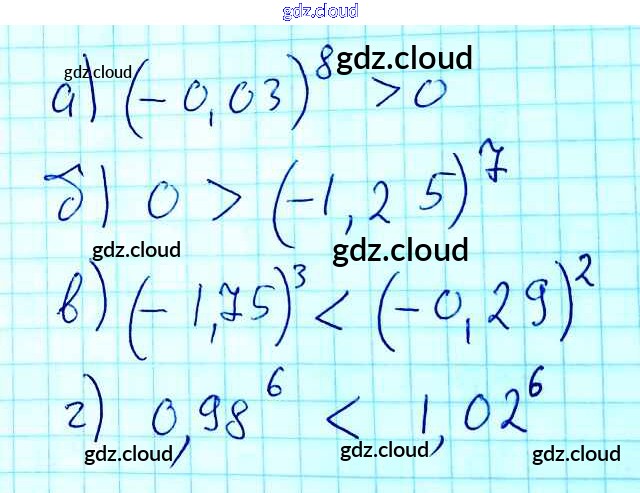 gdz.cloud
gdz.cloud gdz.cloud
а) (-0,03)⁸ > 0
б) 0 > (-1,25)⁷
gdz.cloud gdz.cloud
в) (-1,75)³ < (-0,29)²
г) 0,98⁶ < 1,02⁶
gdz.cloud gdz.cloud gdz.cloud